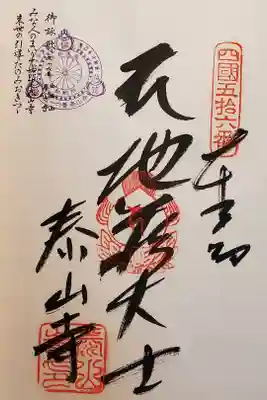 四國五拾六番
奉納
地蔵大士
泰山寺
御詠歌
みな人のまいりてやがて泰山寺
来世の引導たのみおきつゝ